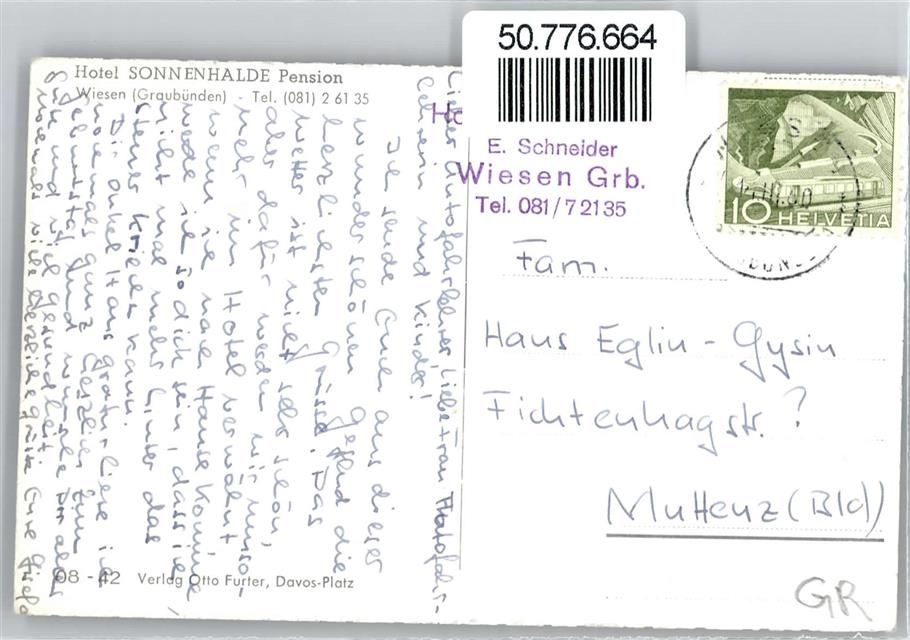 50.776.664
Hotel SONNENHALDE Pension
Wiesen (Graubünden) - Tel. (081) 2 61 35
E. Schneider
Wiesen Grb.
Tel. 081/72135
10 HELVETIA
Fam.
Hans Eglin - Gysin
Fichtenhagstr. ?
Muttenz (Bld)
GR
Lieber Autofahrlehrer, Liebe Frau Autofahr-
lehrerin und Kinder!
Ich sende Euch aus dieser
wunderschönen Gegend die
herzlichsten Grüsse. Das
Wetter ist nicht sehr schön,
aber dafür werden wir umso-
mehr im Hotel verwöhnt
wenn ich nach Hause komme
werde ich so dick sein, dass ich
nicht mal mehr hinter das
Steuer kriechen kann.
Dir Onkel Hans gratuliere ich
nochmals ganz herzlich zum
und wünsche Dir alles
und gute Gesundheit.
Nochmals viele herzliche Grüsse Eure Gisela
08 - 42 Verlag Otto Furter, Davos-Platz